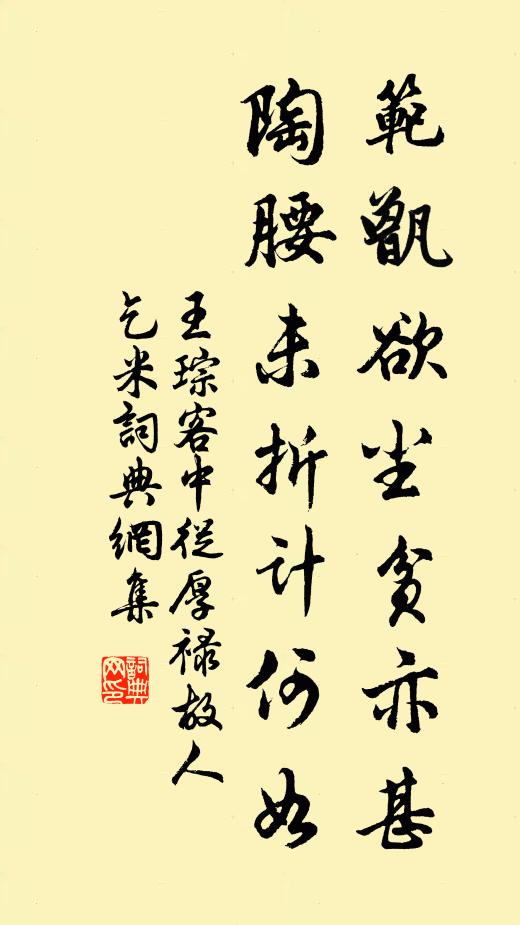 範甑欲尘貧亦甚
陶腰未折計何如
王琮客中從厚祿故人
乞米詞典網集
詞典
网印